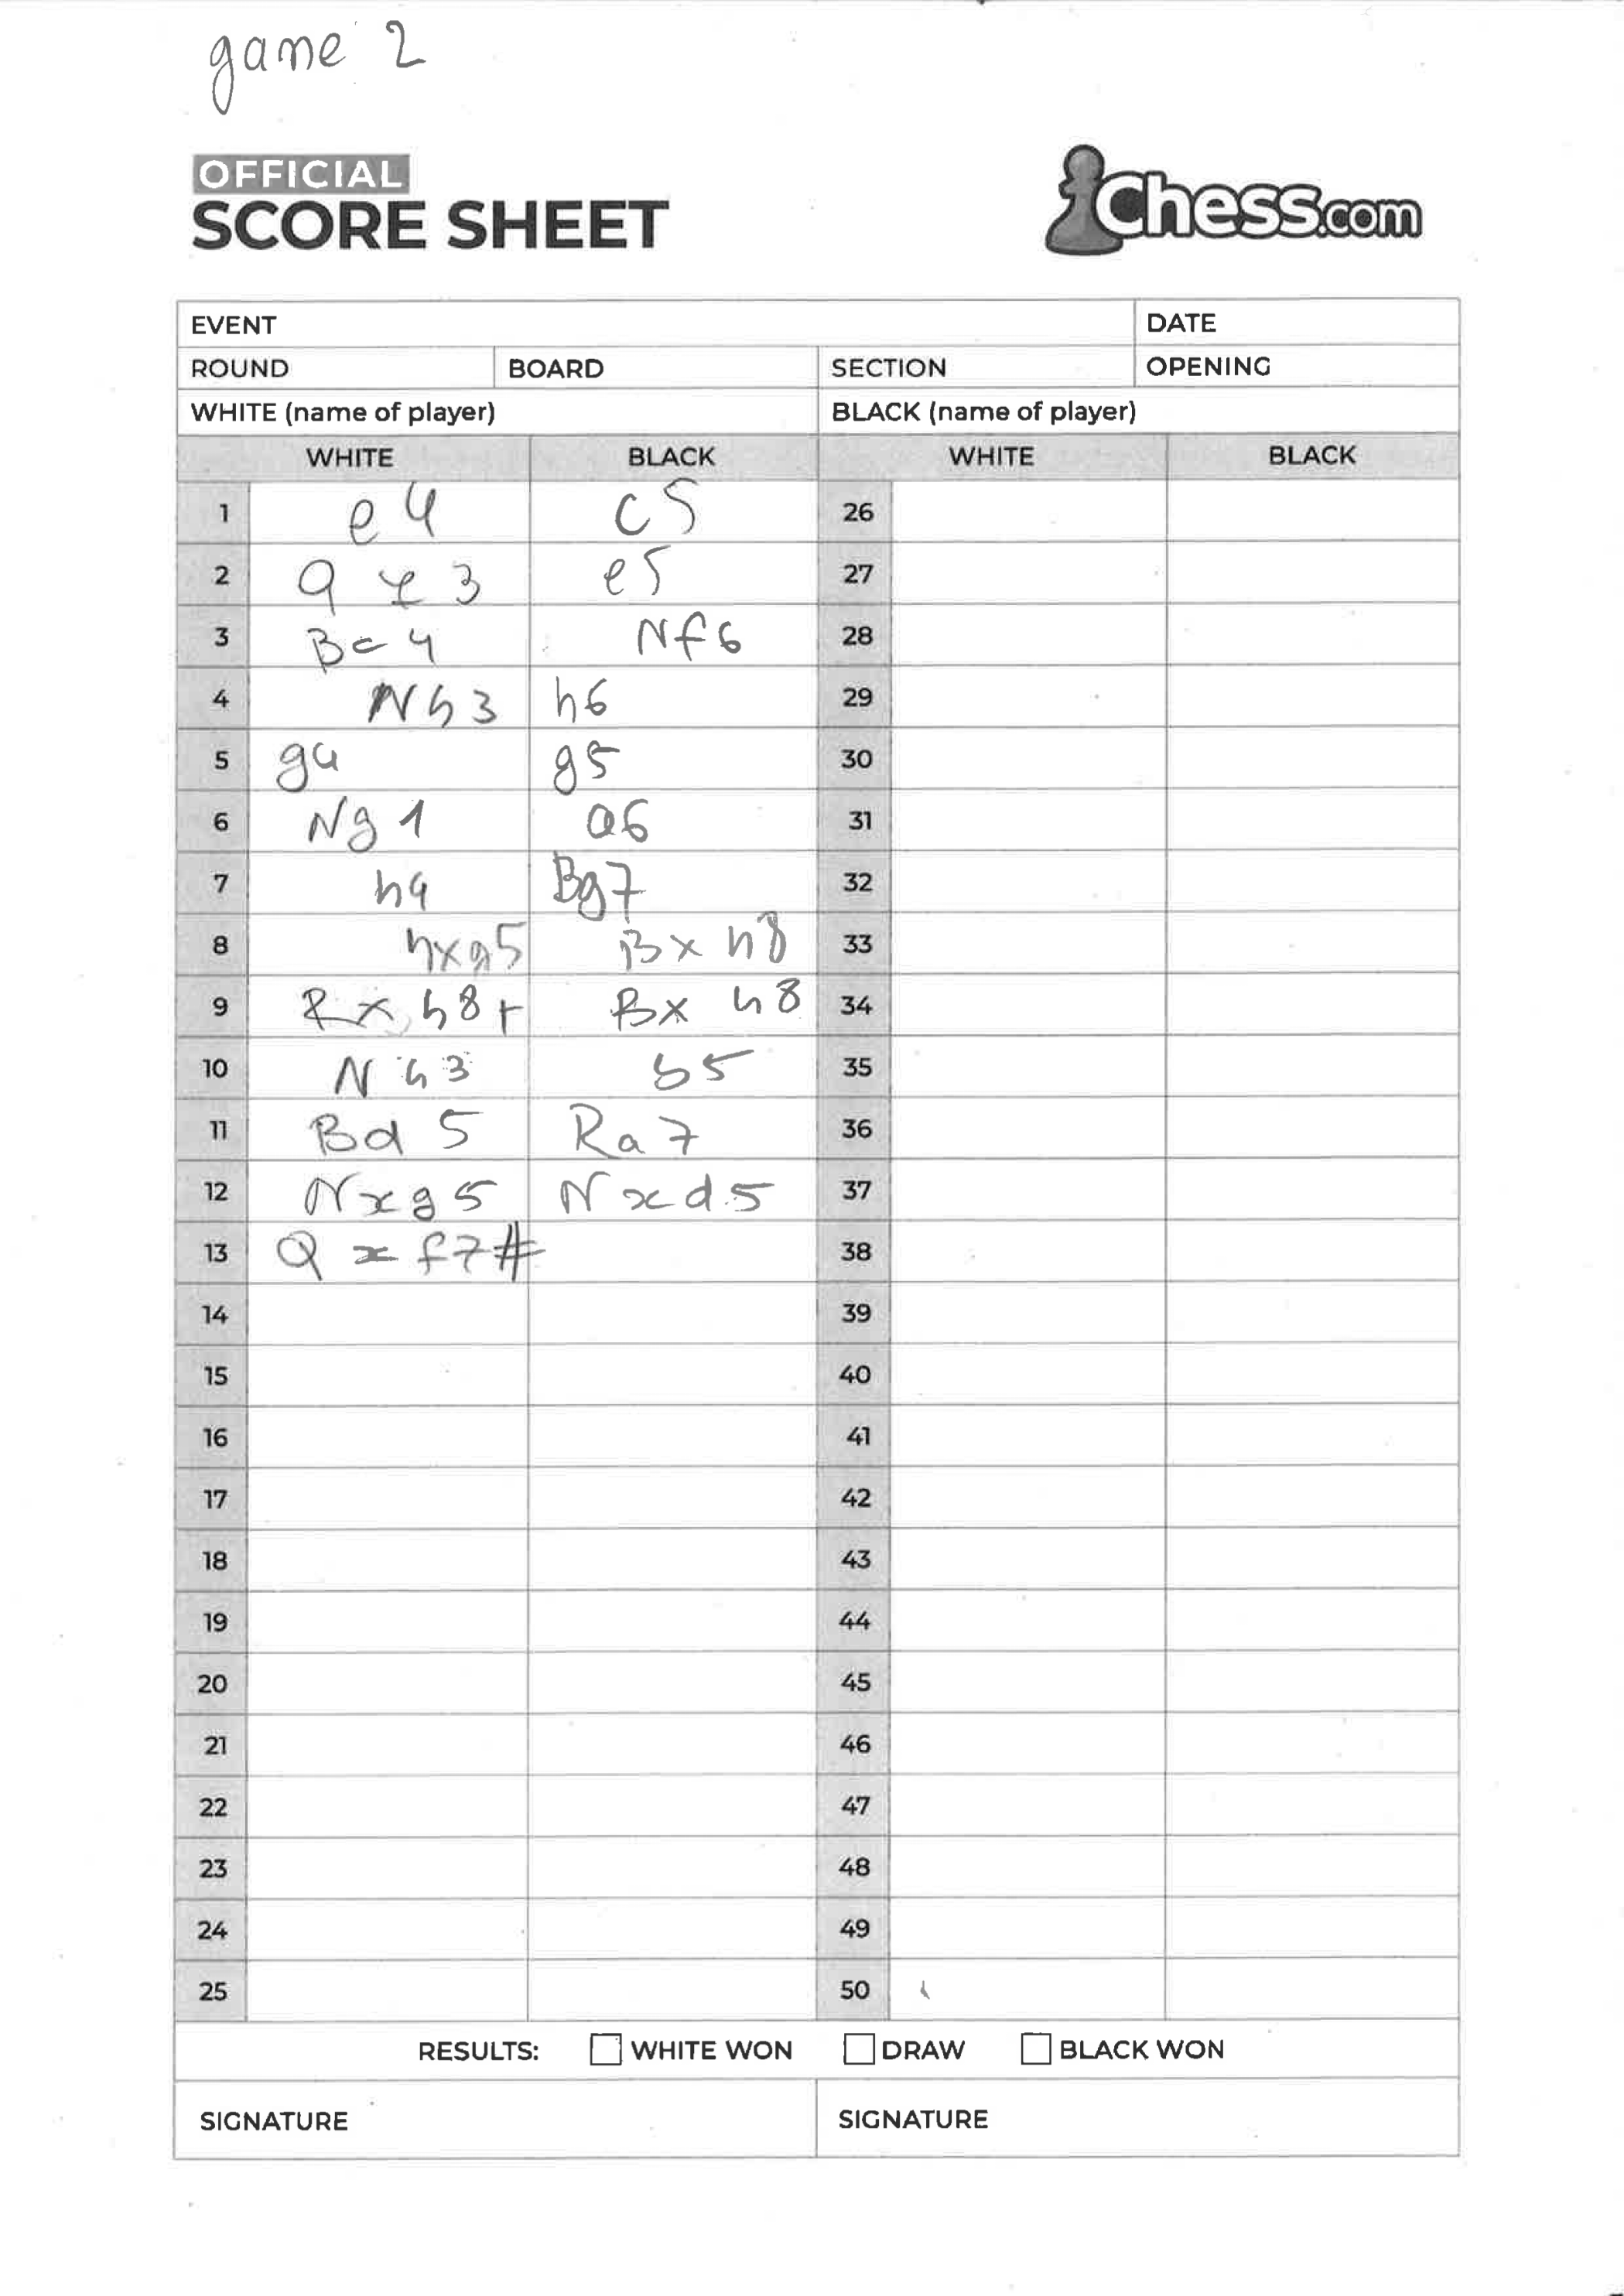 game 2
OFFICIAL
SCORE SHEET
Chess.com
EVENT DATE
ROUND BOARD SECTION OPENING
WHITE (name of player) BLACK (name of player)
WHITE BLACK WHITE BLACK
1 e4 c5 26
2 Q f3 e5 27
3 Bc4 Nf6 28
4 Nh3 h6 29
5 g4 g5 30
6 Ng1 a6 31
7 h4 Bg7 32
8 hxg5 Bxh8 33
9 Rxh8+ Bxh8 34
10 Nh3 b5 35
11 Bd5 Ra7 36
12 Nxg5 Nxd5 37
13 Qxf7# 38
14 39
15 40
16 41
17 42
18 43
19 44
20 45
21 46
22 47
23 48
24 49
25 50
RESULTS: WHITE WON DRAW BLACK WON
SIGNATURE SIGNATURE